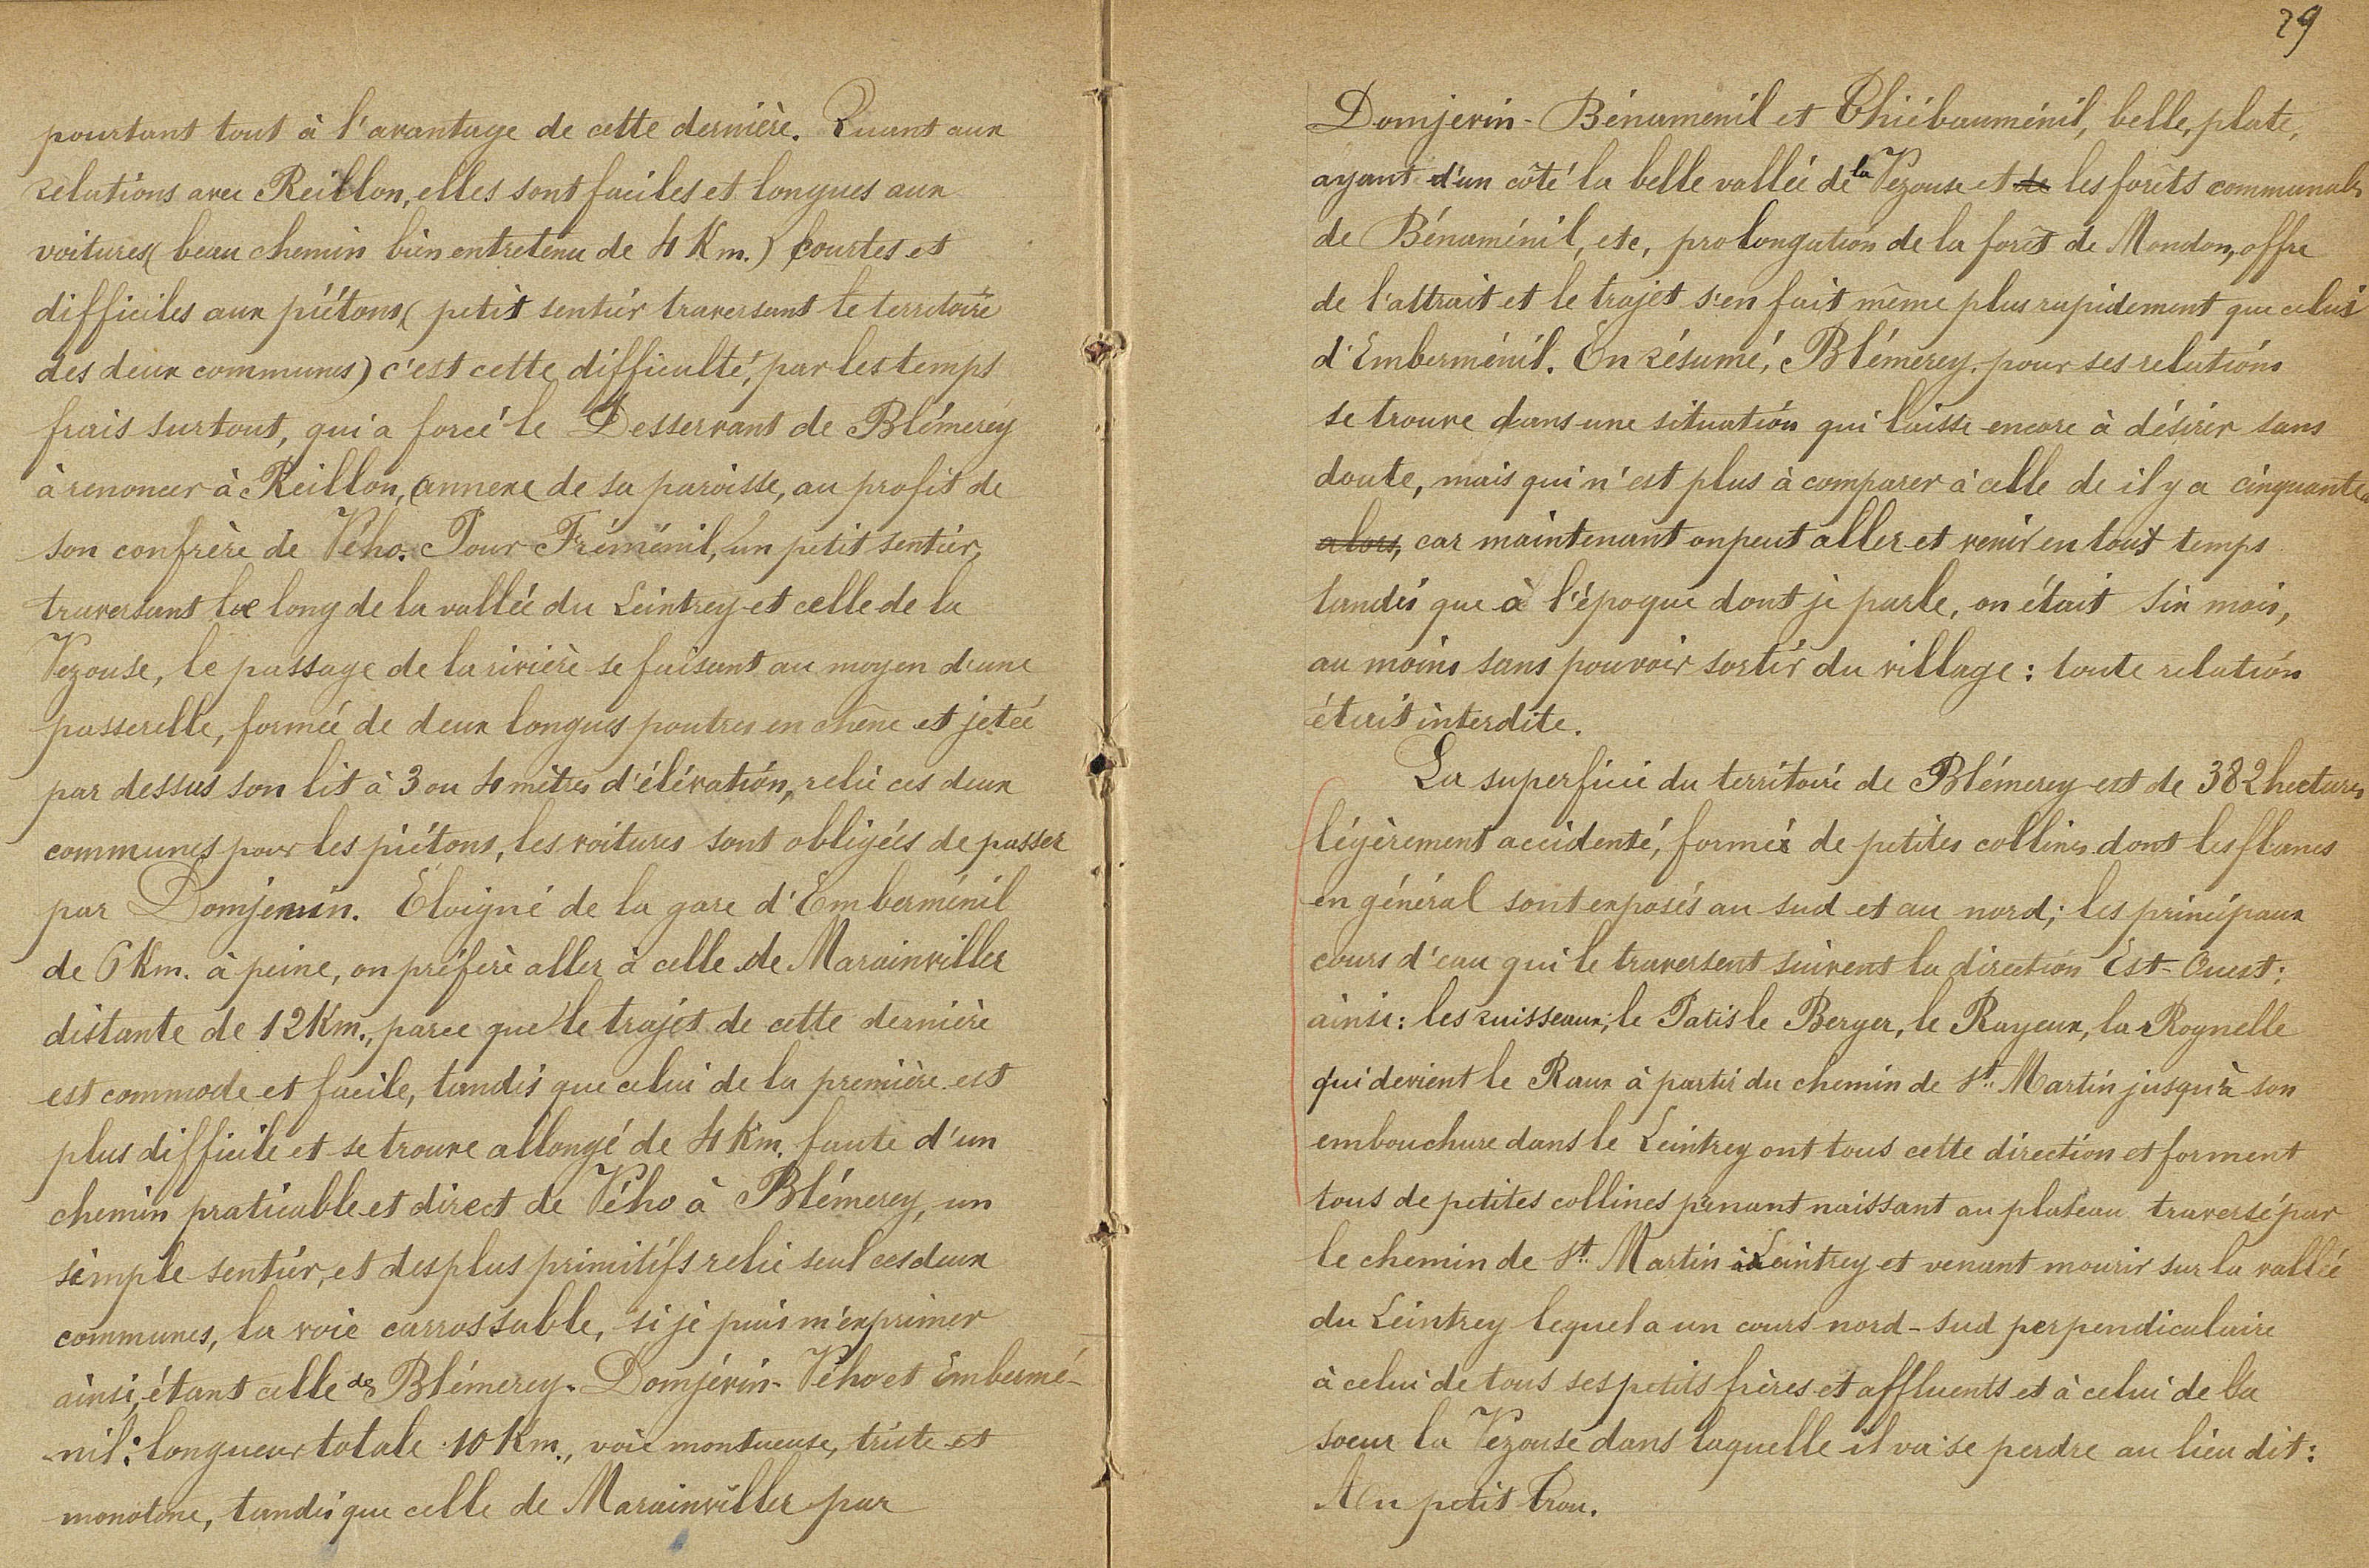 pourtant tout à l'avantage de cette dernière. Quant aux
relations avec Reillon, elles sont faciles et longues aux
voitures (beau chemin bien entretenu de 4 Km.) courtes et
difficiles aux piétons (petit sentier traversant le territoire
des deux communes) c'est cette difficulté, par les temps
frais surtout, qui a forcé le Desservant de Blémerey
à renoncer à Reillon, annexe de sa paroisse, au profit de
son confrère de Vého. Pour Fréménil, un petit sentier,
traversant le long de la vallée du Leintrey et celle de la
Vezouse, le passage de la rivière se faisant au moyen d'une
passerelle, formée de deux longues poutres en chêne et jetée
par dessus son lit à 3 ou 4 mètres d'élévation, relie ces deux
communes pour les piétons, les voitures sont obligées de passer
par Domjevin. Eloigné de la gare d'Emberménil
de 6 Km. à peine, on préfère aller à celle de Marainviller
distante de 12 Km., parce que le trajet de cette dernière
est commode et facile, tandis que celui de la première est
plus difficile et se trouve allongé de 4 Km. faute d'un
chemin praticable et direct de Vého à Blémerey, un
simple sentier, et des plus primitifs relie seul ces deux
communes, la voie carrossable, si je puis m'exprimer
ainsi, étant celle de Blémerey-Domjévin-Vého et Embermé-
nil: longueur totale 10 Km., voie montueuse, triste et
monotone, tandis que celle de Marainviller par
29
Domjevin-Bénaménil et Thiébauménil, belle, plate,
ayant d'un côté la belle vallée de la Vezouse et de les forêts communales
de Bénaménil, etc, prolongation de la forêt de Mondon, offre
de l'attrait et le trajet s'en fait même plus rapidement que celui
d'Emberménil. En résumé, Blémerey, pour ses relations
se trouve dans une situation qui laisse encore à désirer sans
doute, mais qui n'est plus à comparer à celle de il y a cinquante
alors, car maintenant on peut aller et venir en tout temps
tandis que à l'époque dont je parle, on était six mois,
au moins sans pouvoir sortir du village: toute relation
était interdite.
La superficie du territoire de Blémerey est de 382 hectares
légèrement accidenté, formé de petites collines dont les flancs
en général sont exposés au sud et au nord; les principaux
cours d'eau qui le traversent suivent la direction Est-Ouest:
ainsi: les ruisseaux; le Patis le Berger, le Rayeux, la Rognelle
qui devient le Raux à partir du chemin de St. Martin jusqu'à son
embouchure dans le Leintrey ont tous cette direction et forment
tous de petites collines prenant naissant au plateau traversé par
le chemin de St. Martin à Leintrey et venant mourir sur la vallée
du Leintrey lequel a un cours nord-sud perpendiculaire
à celui de tous ses petits frères et affluents et à celui de sa
soeur la Vezouse dans laquelle il va se perdre au lieu dit:
Au petit Trou.